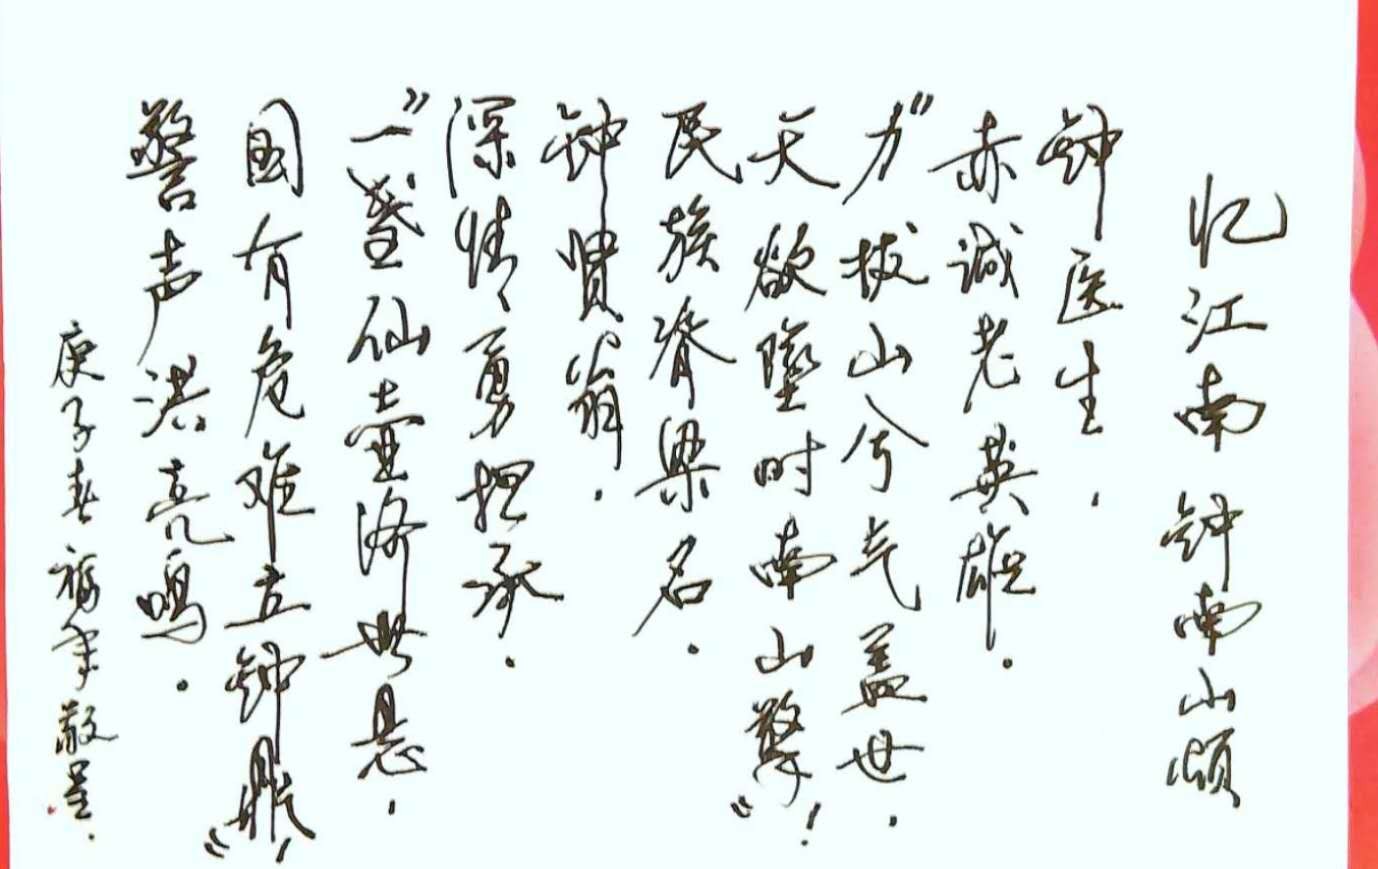 忆江南 钟南山颂
钟医生.
赤诚老英雄.
"力拔山兮气盖世.
天欲坠时南山擎"!
民族脊梁名.
钟贤翁.
深情勇担承.
"一仙壶济世悬.
国有危难立钟鼎"!
警声洪亮鸣.
庚子春 福 敬呈.